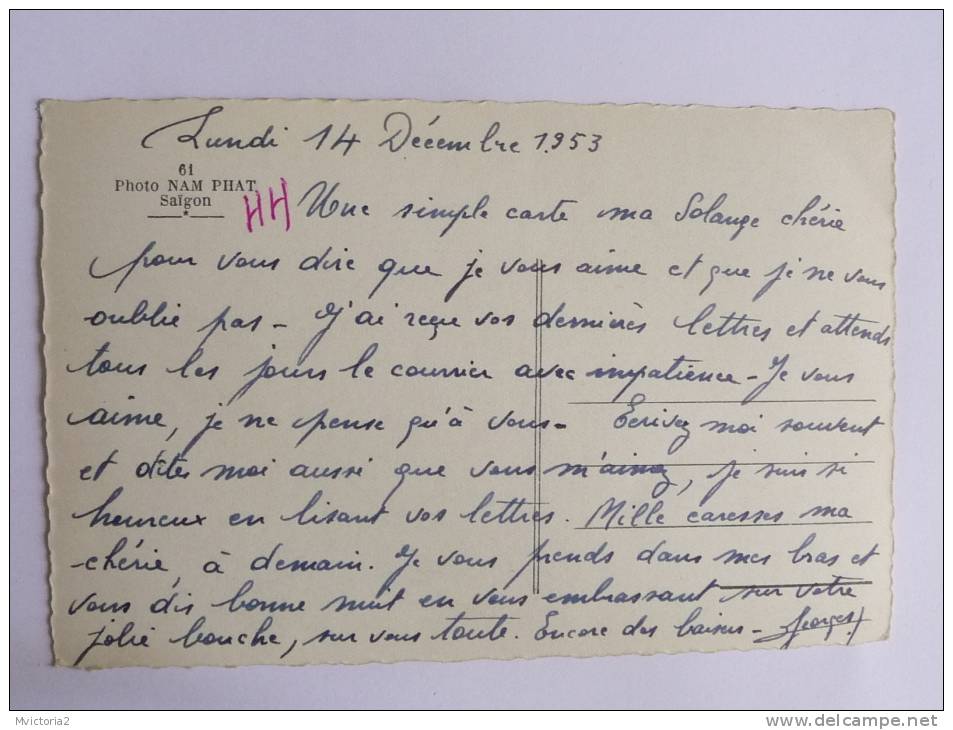 Lundi 14 Décembre 1953
61
Photo NAM PHAT
Saïgon
HH
Une simple carte ma Solange chérie
pour vous dire que je vous aime et que je ne vous
oublie pas - J'ai reçu vos dernières lettres et attends
tous les jours le courrier avec impatience - Je vous
aime, je ne pense qu'à vous - Ecrivez moi souvent
et dîtes moi aussi que vous m'aimez, je suis si
heureux en lisant vos lettres. Mille caresses ma
chérie, à demain. Je vous prends dans mes bras et
vous dis bonne nuit en vous embrassant sur votre
jolie bouche, sur vous toute. Encore des baisers - Georges
Mvictoria2
www.delcampe.net